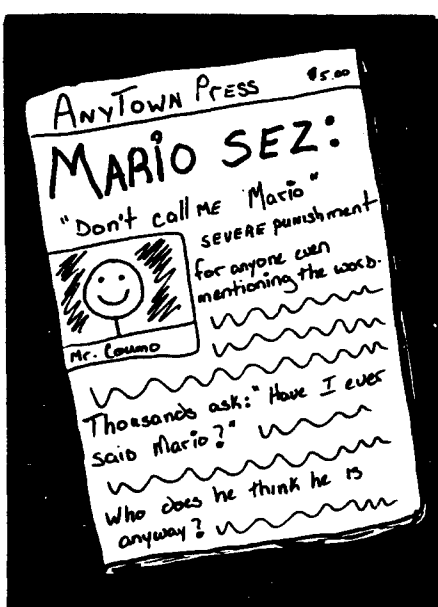 AnyTown Press $5.00
MARIO SEZ:
"Don't call ME "Mario"
SEVERE punishment
for anyone even
mentioning the word.
Mr. Coumo
Thousands ask: "Have I ever
said Mario?"
Who does he think he is
anyway?